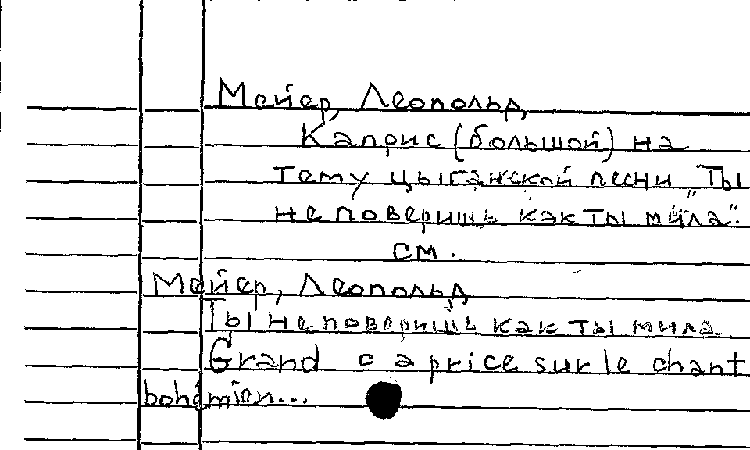 Мейер, Леопольд,
Каприс (большой) на
тему цыганской песни „Ты
не поверишь как ты мила".
см.
Мейер, Леопольд
Ты не поверишь как ты мила
Grand caprice sur le chant
bohémien...